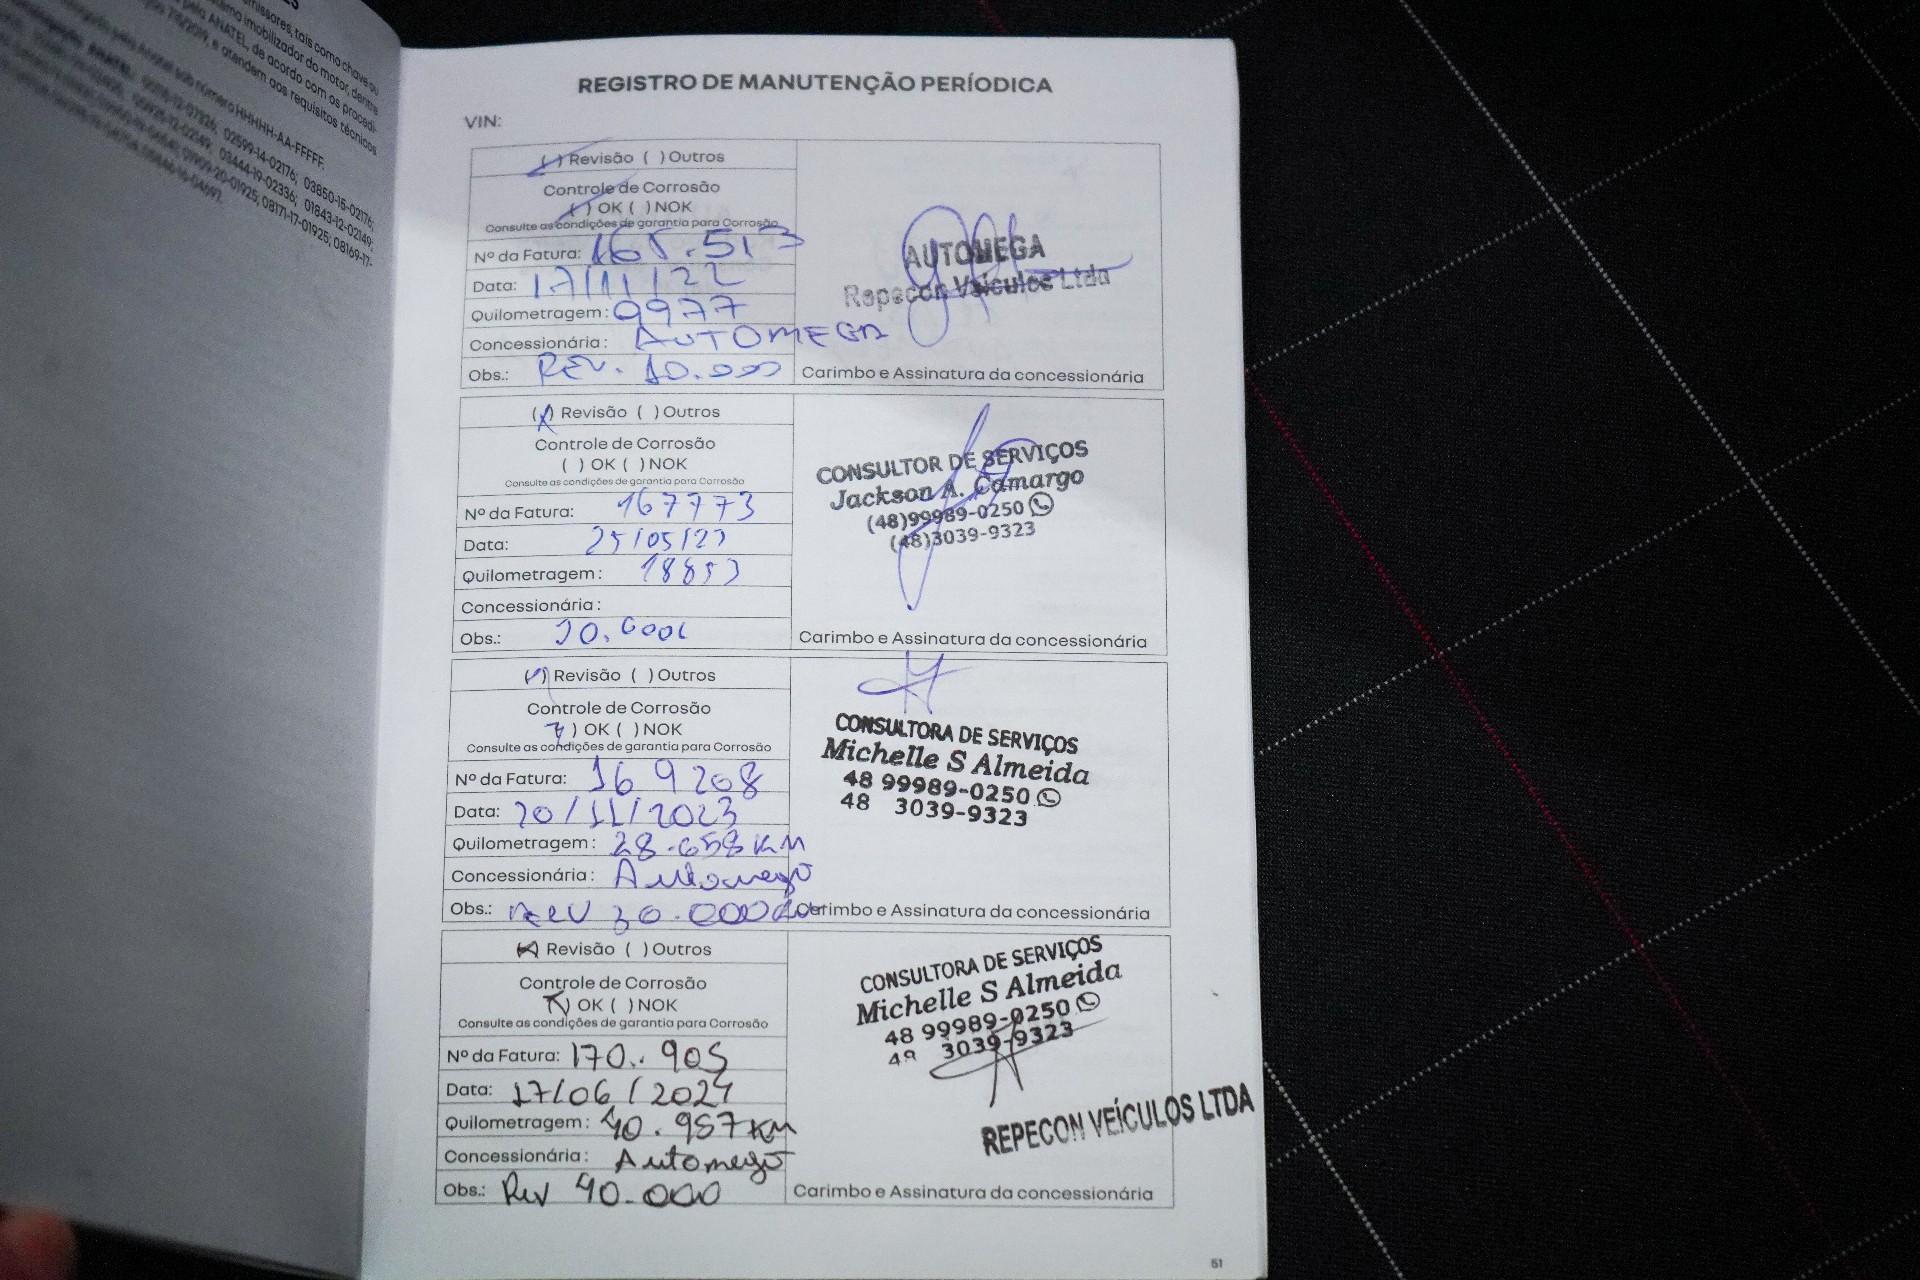 missores, tais como chave ou
tema imobilizador do motor, dentre
pela ANATEL, de acordo com os procedi-
715/2019, e atendem aos requisitos técnicos
pela Anatel sob número HHHHH-AA-FFFFF.
02599-14-02176; 03850-15-02176;
03444-19-02336; 01843-12-02149;
01909-20-01925; 08171-17-01925; 08169-17-
REGISTRO DE MANUTENÇÃO PERÍODICA
VIN:
( ) Revisão ( ) Outros
Controle de Corrosão
( ) OK ( ) NOK
Consulte as condições de garantia para Corrosão
Nº da Fatura: 165.513
Data: 17/11/22
Quilometragem: 9977
Concessionária: AUTOMEGA
Obs.: REV. 10.000
AUTOMEGA
Repecon Veículos Ltda
Carimbo e Assinatura da concessionária
(X) Revisão ( ) Outros
Controle de Corrosão
( ) OK ( ) NOK
Consulte as condições de garantia para Corrosão
Nº da Fatura: 167773
Data: 25/05/23
Quilometragem: 18853
Concessionária:
Obs.:
CONSULTOR DE SERVIÇOS
Jackson A. Camargo
(48)99989-0250
(48)3039-9323
Carimbo e Assinatura da concessionária
( ) Revisão ( ) Outros
Controle de Corrosão
( ) OK ( ) NOK
Consulte as condições de garantia para Corrosão
Nº da Fatura: 169208
Data: 20/11/2023
Quilometragem: 28.658 KM
Concessionária: Automega
Obs.: Rev 30.000
CONSULTORA DE SERVIÇOS
Michelle S Almeida
48 99989-0250
48 3039-9323
Carimbo e Assinatura da concessionária
(X) Revisão ( ) Outros
Controle de Corrosão
(X) OK ( ) NOK
Consulte as condições de garantia para Corrosão
Nº da Fatura: 170.905
Data: 17/06/2024
Quilometragem: 40.957 KM
Concessionária: Automega
Obs.: Rev 40.000
CONSULTORA DE SERVIÇOS
Michelle S Almeida
48 99989-0250
48 3039-9323
REPECON VEÍCULOS LTDA
Carimbo e Assinatura da concessionária
51